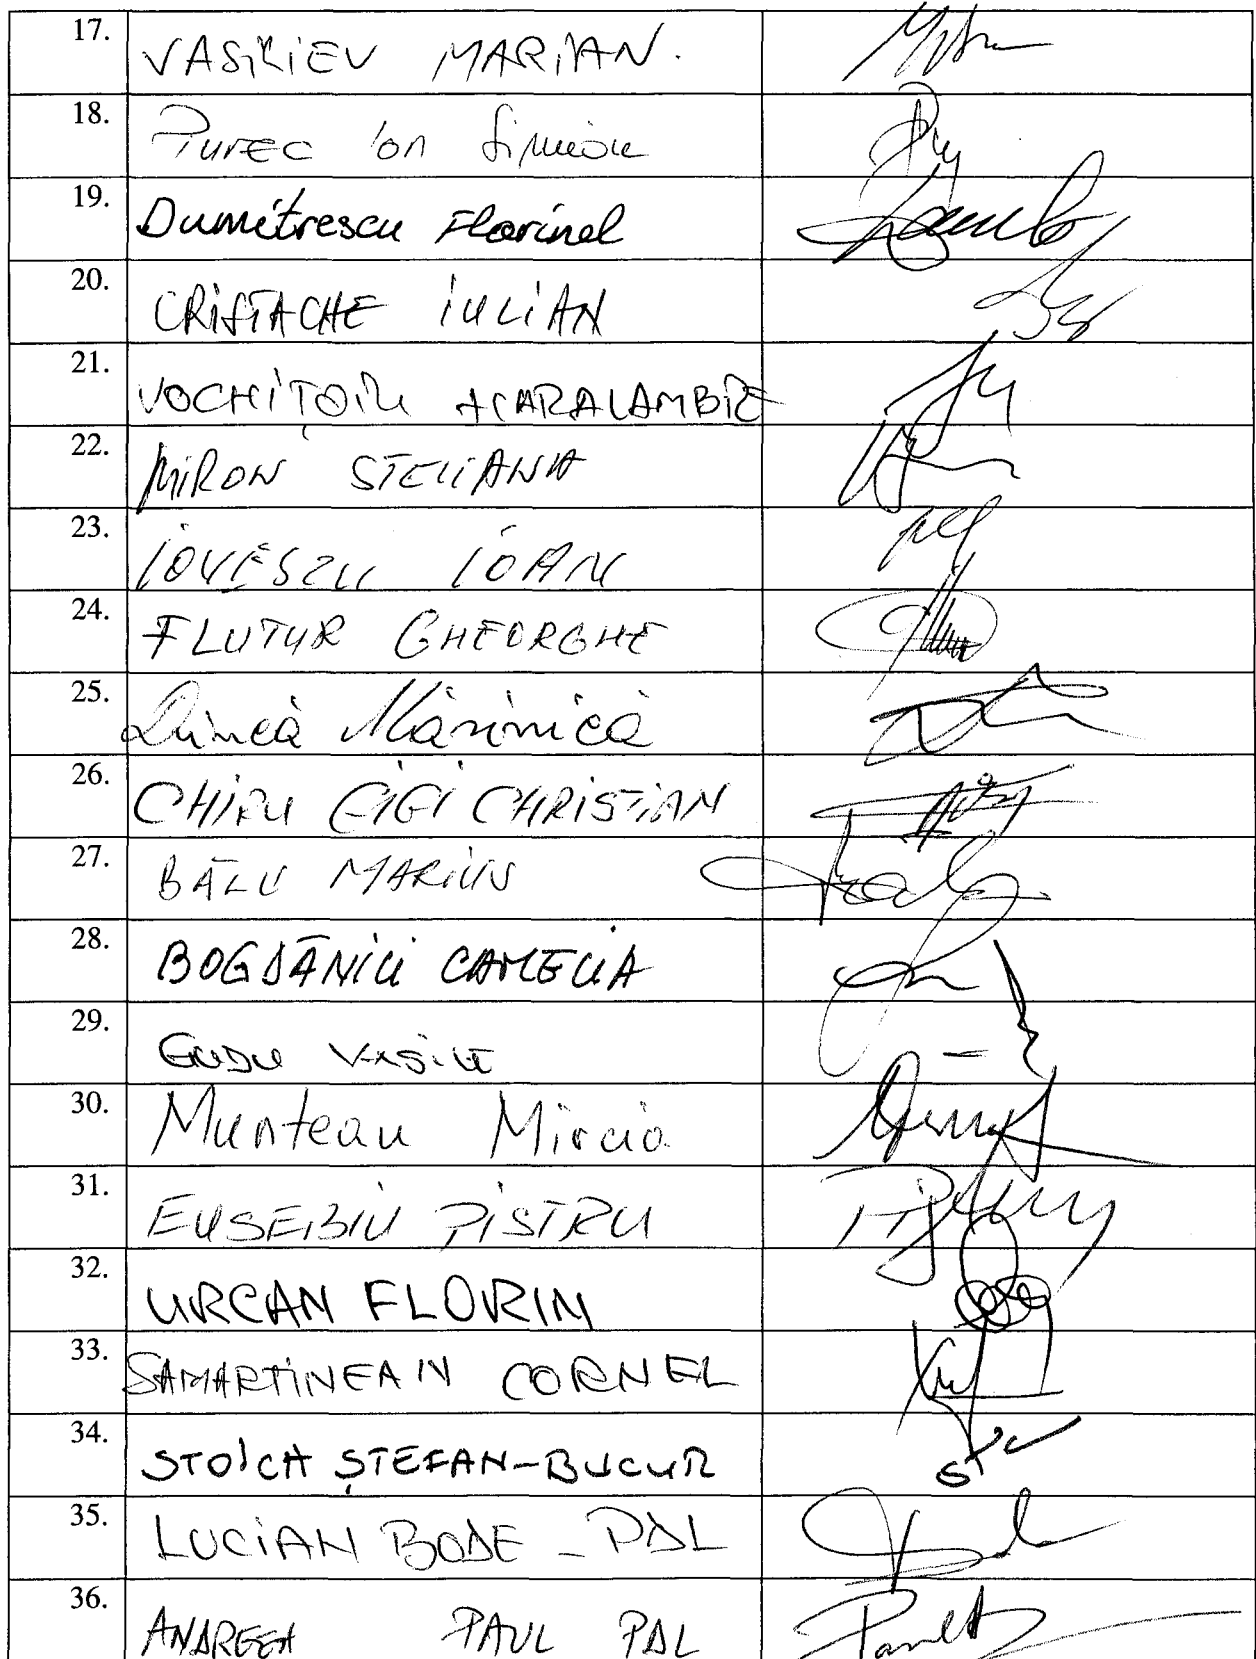 17. VASILIEV MARIAN.
18. Purec Ion Simion
19. Dumitrescu Florinel
20. CRISTACHE IULIAN
21. VOCHIȚOIU HARALAMBIE
22. MIRON STELIANA
23. IOVESCU IOAN
24. FLUTUR GHEORGHE
25. Dincă Mărinică
26. CHIRU GIGI CHRISTIAN
27. BĂLU MARIUS
28. BOGDĂNICI CAMELIA
29. GUDU VASILE
30. Munteanu Mircia
31. EUSEBIU PISTRU
32. URCAN FLORIN
33. SAMARTINEAN CORNEL
34. STOICA ȘTEFAN-BUCUR
35. LUCIAN BODE - PDL
36. ANDREEA PAUL PDL